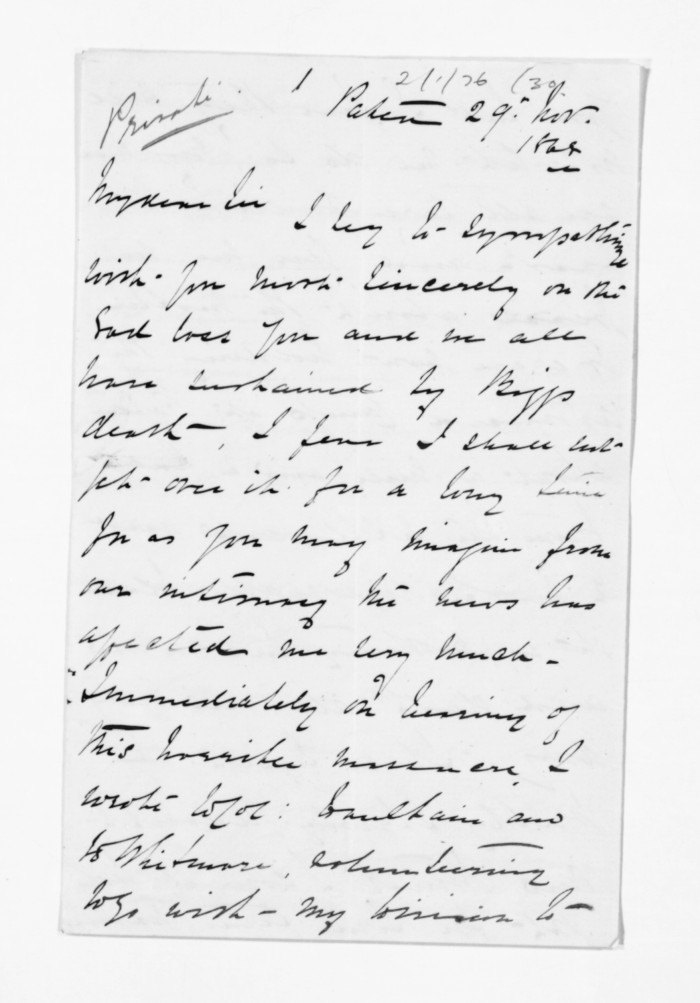 Private.
1
2/1/76 (39)
Patea 29th Nov.
1868
My dear Sir
I beg to sympathize
with you most sincerely on the
sad loss you and we all
have sustained by Biggs
death, I fear I shall not
get over it for a long time
for as you may imagine from
our intimacy the news has
affected me very much -
Immediately on hearing of
this horrible massacre, I
wrote to Col: Haultain and
to Whitmore, volunteering
to go with my Division to